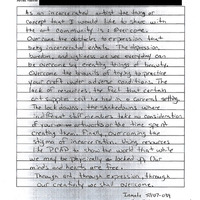 As an incarcerated artist the thing
Concept that I would like to share with
the art community is overcome.
Overcome the obstacles to expression that
being incarcerated entails. The depression,
boredom, and ugliness we see everyday can
be overcome by creating things of beauty.
Overcome the of trying to practice
your craft in adverse conditions. The
lack of resources, the fact that certain
art supplies can't be had in a carceral setting.
The lock downs, the shakedowns where
indifferent staff members take no consideration
of your artworks or the time spent
creating them. Finally, overcoming the
stigma of incarceration. Using resources
like to show the world that while
we may be physically locked up Our
minds and hearts are free.
Through art, through expression, through
our creativity we shall overcome.